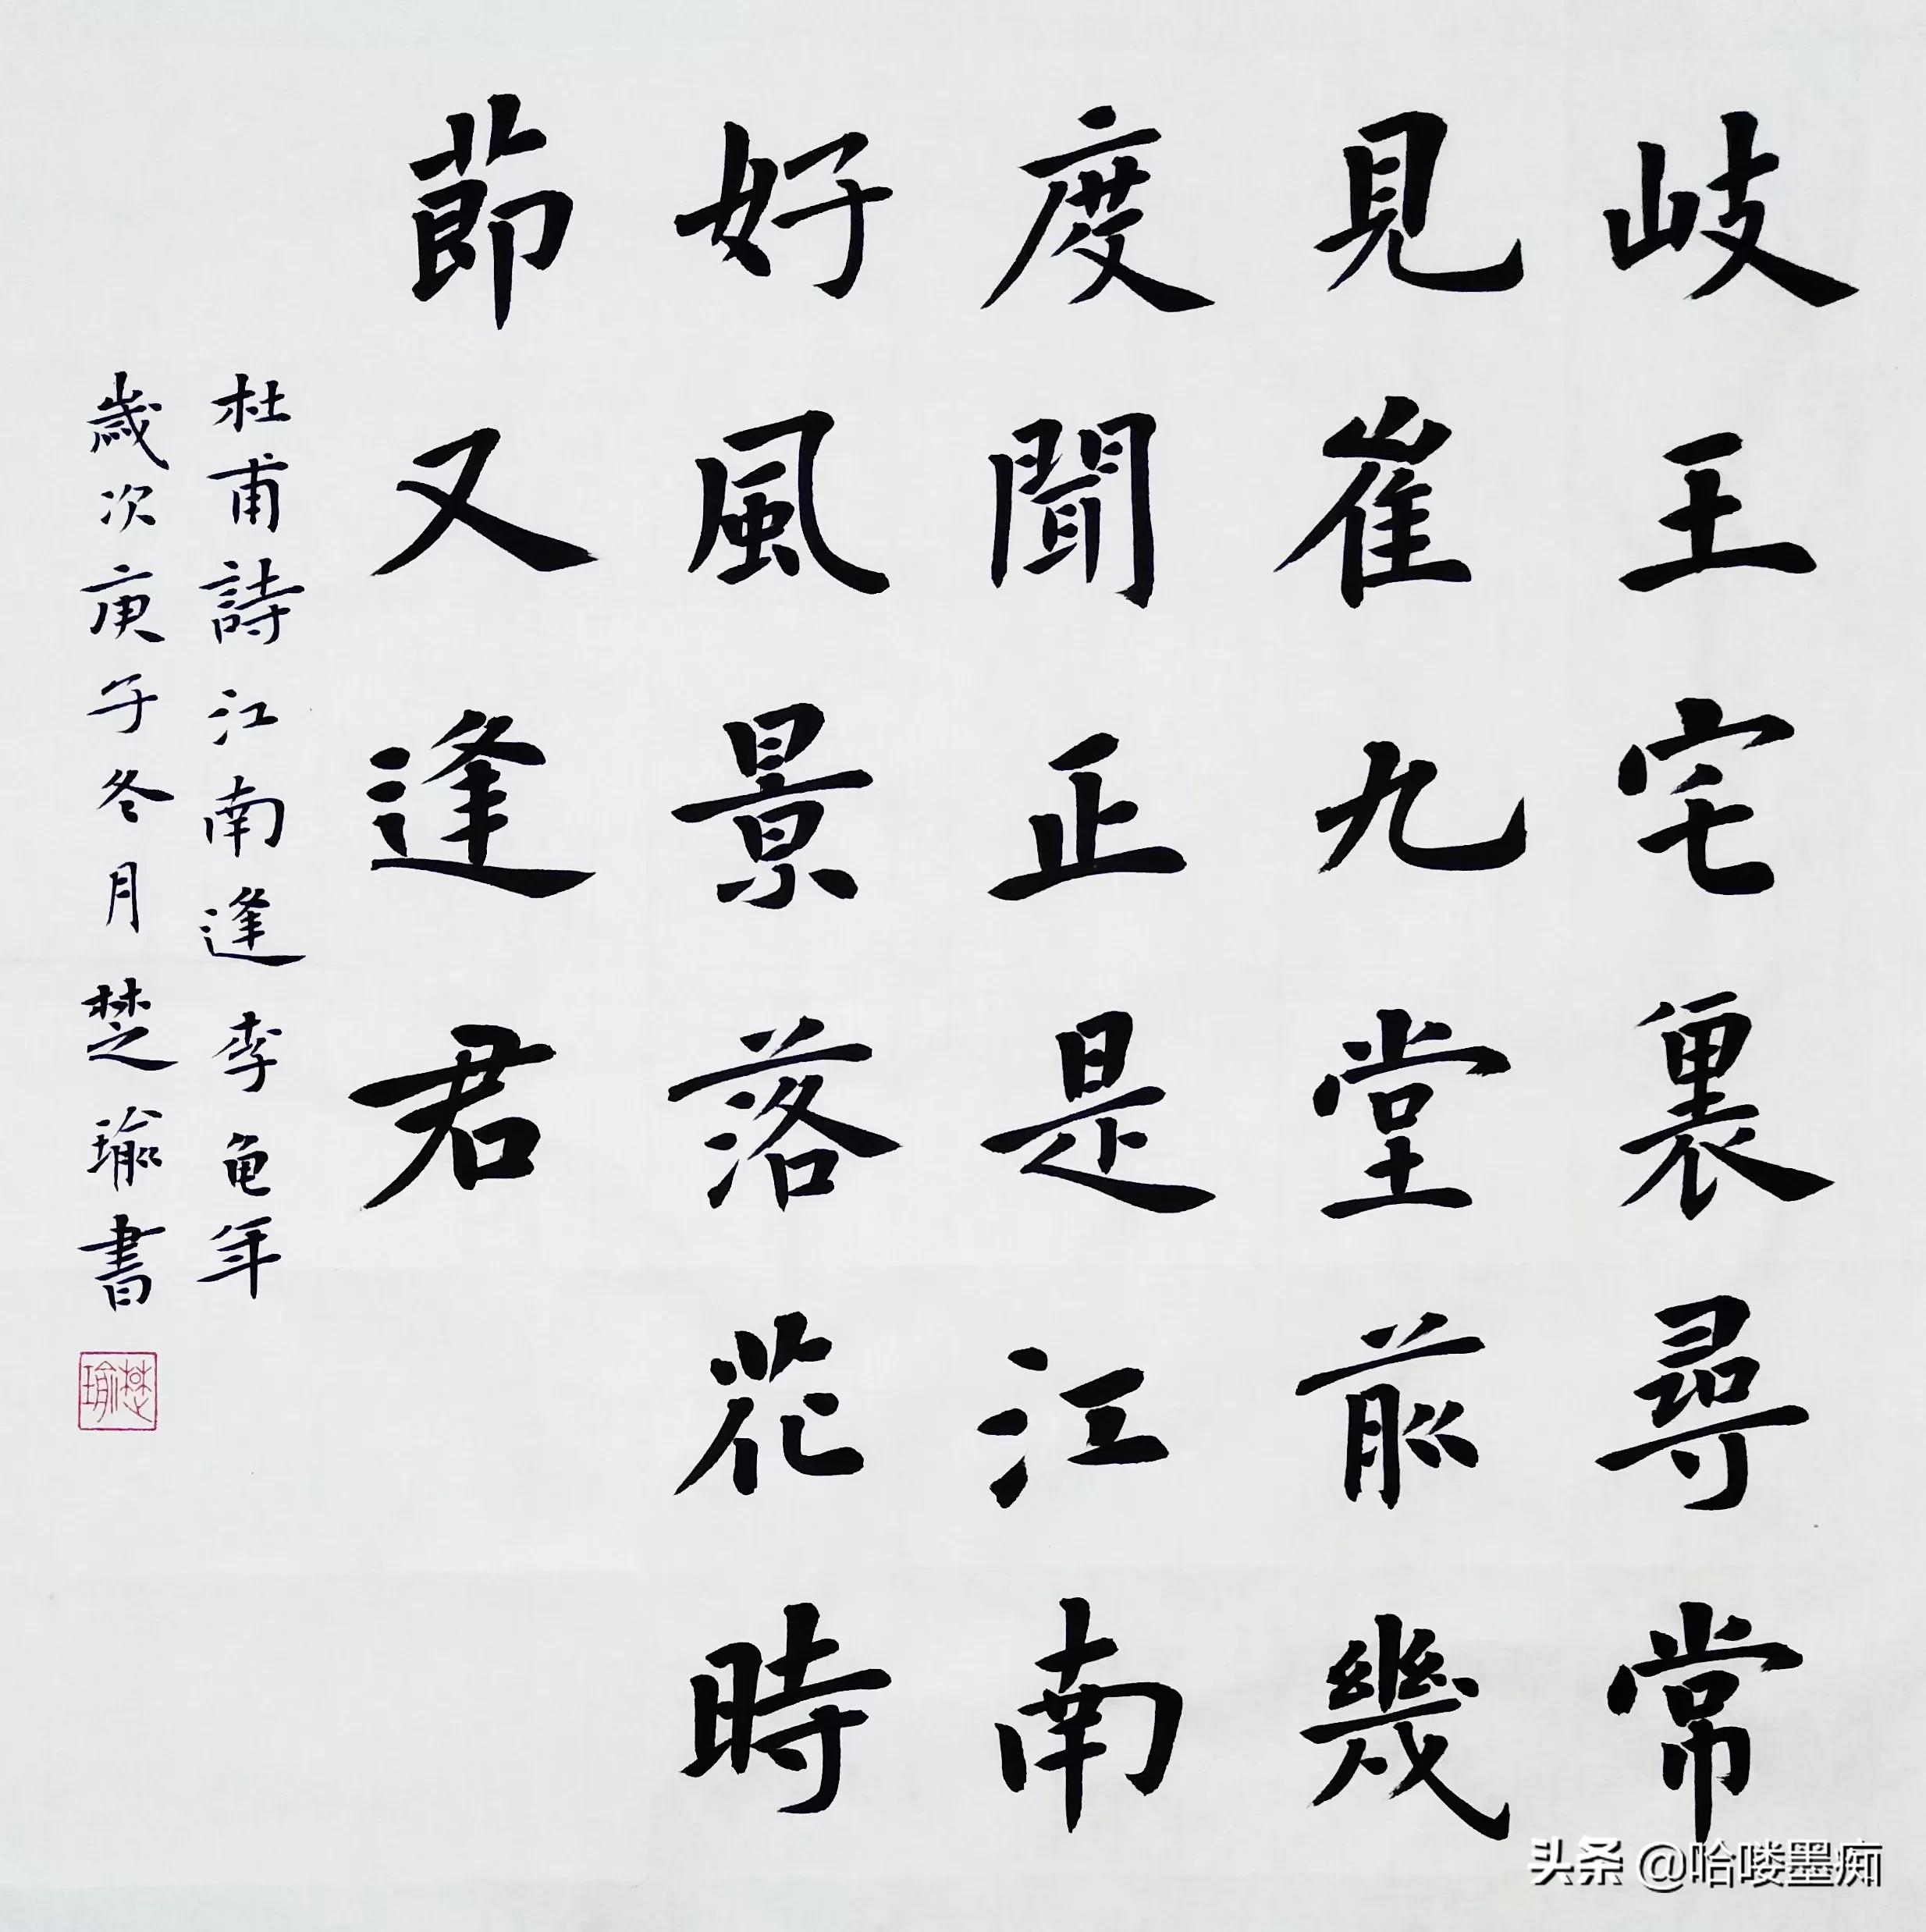 岐王宅裏尋常
見崔九堂前幾
度聞正是江南
好風景落花時
節又逢君
杜甫詩江南逢李龟年
歲次庚子冬月楚瑜書
楚瑜
头条 @哈喽墨痴